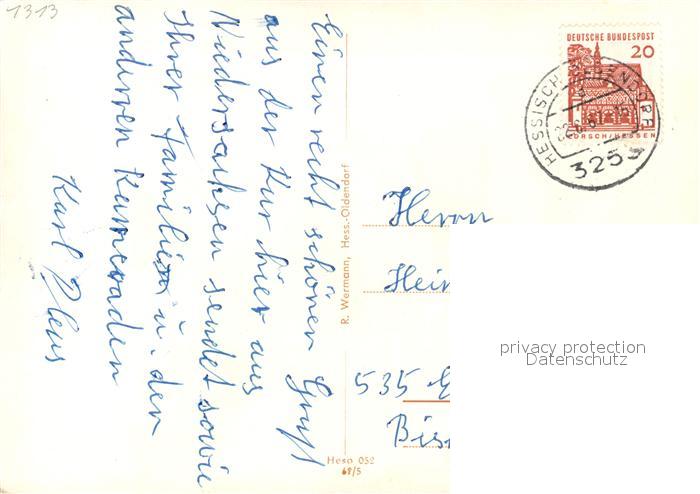 1313
Einen recht schönen Gruß
aus der Kur hier aus
Niedersachsen sendet sowie
Ihrer Familien u. den
anderren Kameraden
Karl
R. Wermann, Hess.-Oldendorf
Heso 052
68/5
DEUTSCHE BUNDESPOST
20
LORSCH/HESSEN
HESSISCH OLDENDORF
3253
Herrn
Hein
535
Bis
privacy protection
Datenschutz